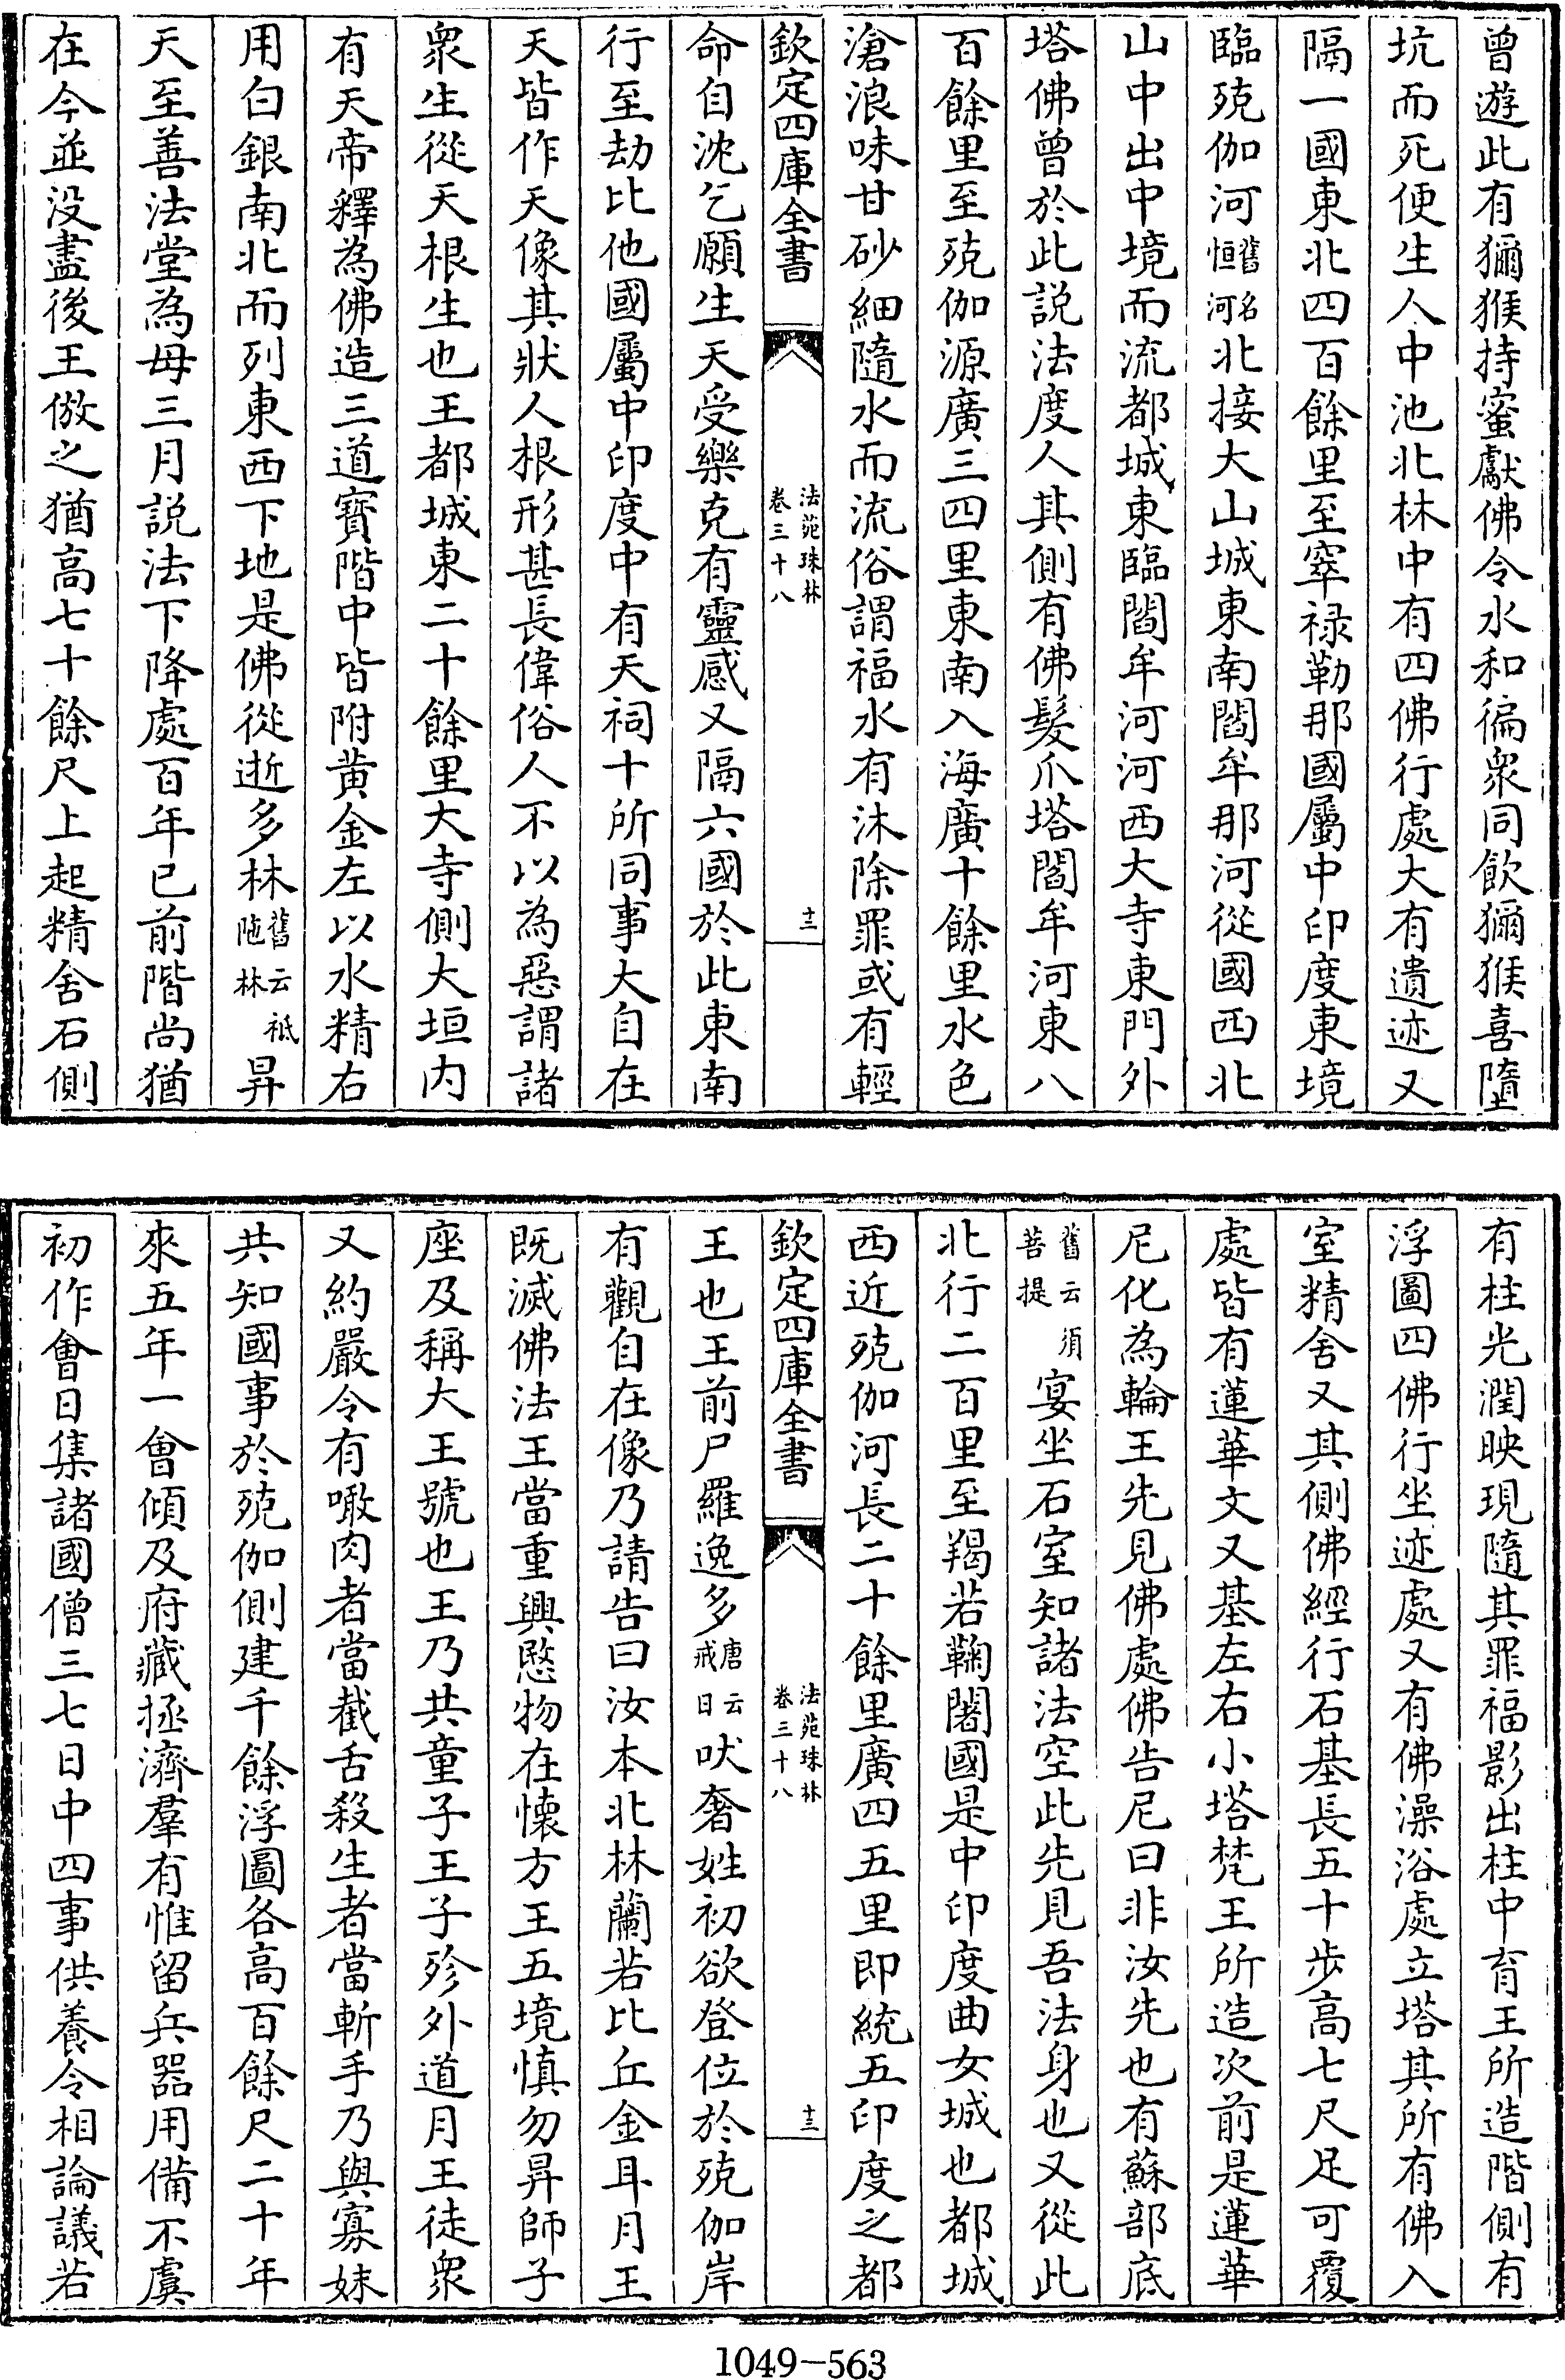 曾遊此有獼猴持蜜獻佛令水和徧衆同飲獼猴喜墮
坑而死便生人中池北林中有四佛行處大有遺迹又
隔一國東北四百餘里至窣禄勒那國屬中印度東境
臨殑伽河舊名恒河北接大山城東南閻牟那河從國西北
山中出中境而流都城東臨閻牟河河西大寺東門外
塔佛曾於此説法度人其側有佛髮爪塔閻牟河東八
百餘里至殑伽源廣三四里東南入海廣十餘里水色
滄浪味甘砂細隨水而流俗謂福水有沐除罪或有輕
欽定四庫全書
法苑珠林
卷三十八
十二
命自沈乞願生天受樂克有靈感又隔六國於此東南
行至劫比他國屬中印度中有天祠十所同事大自在
天皆作天像其狀人根形甚長偉俗人不以為惡謂諸
衆生從天根生也王都城東二十餘里大寺側大垣内
有天帝釋為佛造三道寶階中皆附黄金左以水精右
用白銀南北而列東西下地是佛從逝多林舊云祇陁林昇
天至善法堂為母三月説法下降處百年已前階尚猶
在今並没盡後王倣之猶高七十餘尺上起精舍石側
有柱光潤映現隨其罪福影出柱中育王所造階側有
浮圖四佛行坐迹處又有佛澡浴處立塔其所有佛入
室精舍又其側佛經行石基長五十步高七尺足可覆
處皆有蓮華文又基左右小塔梵王所造次前是蓮華
尼化為輪王先見佛處佛告尼曰非汝先也有蘇部底
舊云須菩提宴坐石室知諸法空此先見吾法身也又從此
北行二百里至羯若鞠闍國是中印度曲女城也都城
西近殑伽河長二十餘里廣四五里即統五印度之都
欽定四庫全書
法苑珠林
卷三十八
十三
王也王前尸羅逸多唐云戒日吠奢姓初欲登位於殑伽岸
有觀自在像乃請告曰汝本北林蘭若比丘金耳月王
既滅佛法王當重興愍物在懷方王五境慎勿昇師子
座及稱大王號也王乃共童子王子殄外道月王徒衆
又約嚴令有噉肉者當截舌殺生者當斬手乃與寡妹
共知國事於殑伽側建千餘浮圖各高百餘尺二十年
來五年一會傾及府藏拯濟羣有惟留兵器用備不虞
初作會日集諸國僧三七日中四事供養令相論議若
1049-563